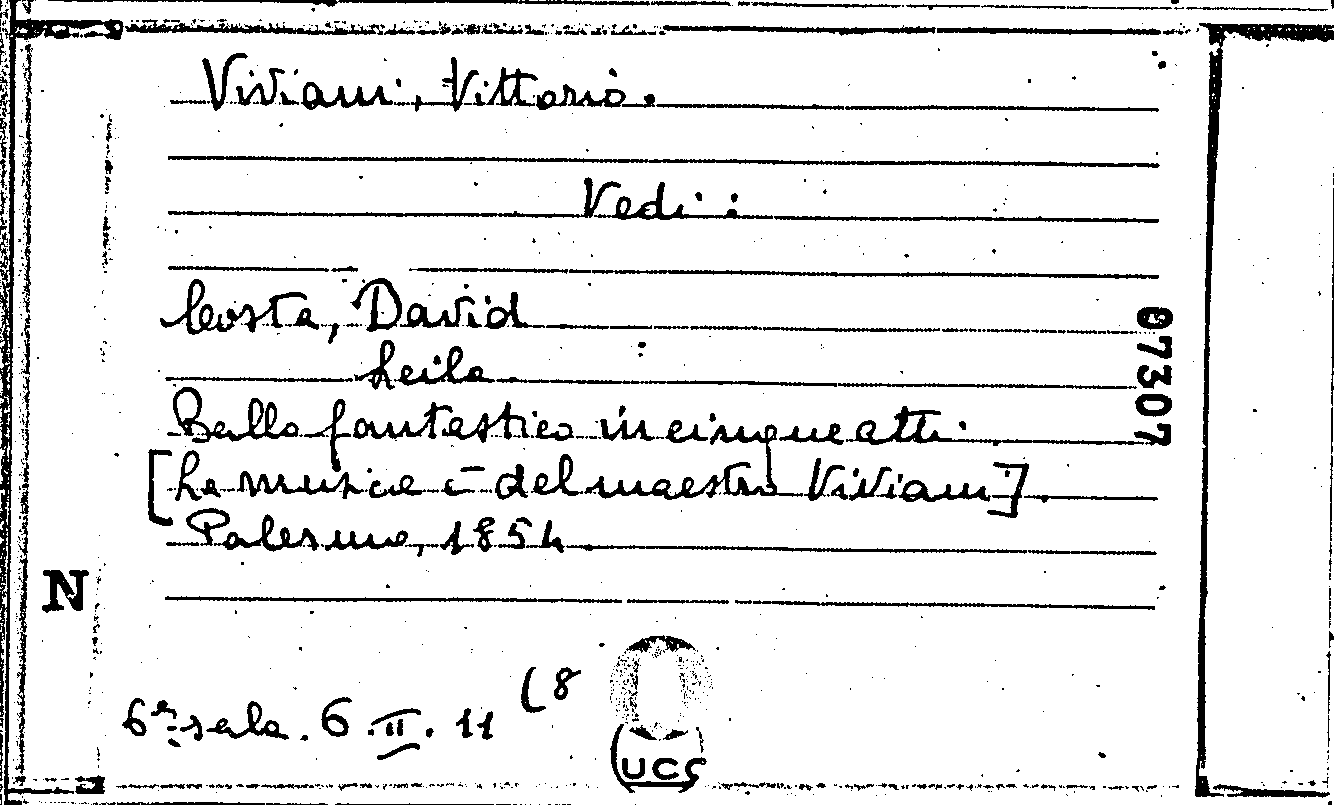 Viviani, Vittorio.
Vedi:
Costa, David
Leila
Ballo fantastico in cinque atti.
[La musica è del maestro Viviani].
Palermo, 1854.
07307
N
6ª sala. 6.II.11 (8
UCS